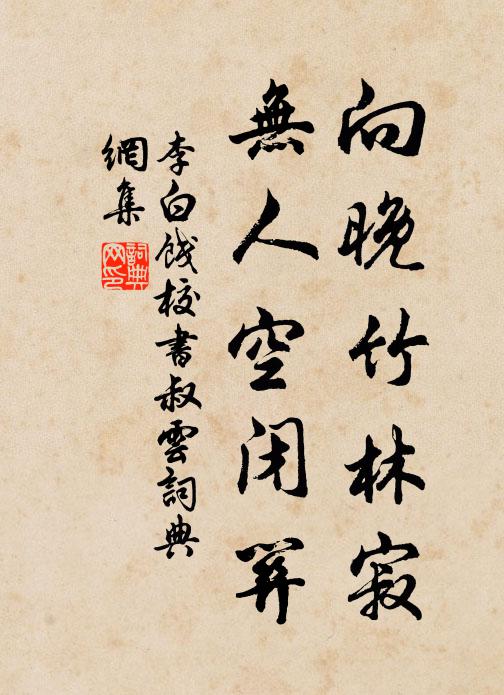 向晚竹林寂
無人空閉關
李白餞校書叔雲詞典
網集
詞典
网印